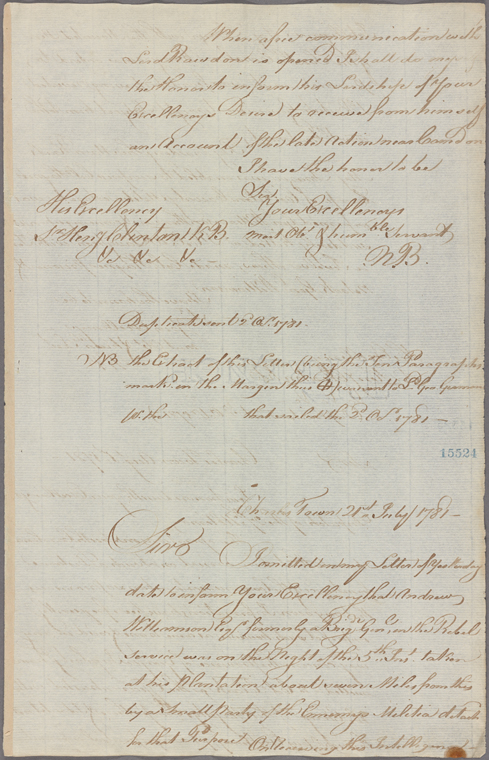 When a free communication with
Lord Rawdon is opened I shall do my
the Honor to inform his Lordship of Your
Excellency's Desire to receive from himself
an Account of the late Action near Camden
I have the honor to be
Sir
Your Excellencys
His Excellency
Sr. Henry Clinton K.B. most Obt. & hum ble Servant
&c &c &c — N.B.
Duplicate sent 2d Ot. 1781.
NB the Extract of this Letter (being the Paragraphs
mark'd on the Margin thus sent to Ld. Geo Germain
by the that sailed the 2d Ot. 1781 —
15524
Charles Town 21st July 1781 —
Sir
I omitted in my Letter of Yesterday
date to inform Your Excellency that Andrew
Williamson Esqr. formerly a Brig'r Gen'l in the Rebel
Service was on the Night of the 5th Inst. taken
at his Plantation about seven Miles from this
by a Small Party of the Enemys Militia detach'd
for that Purpose On receiving this Intelligence